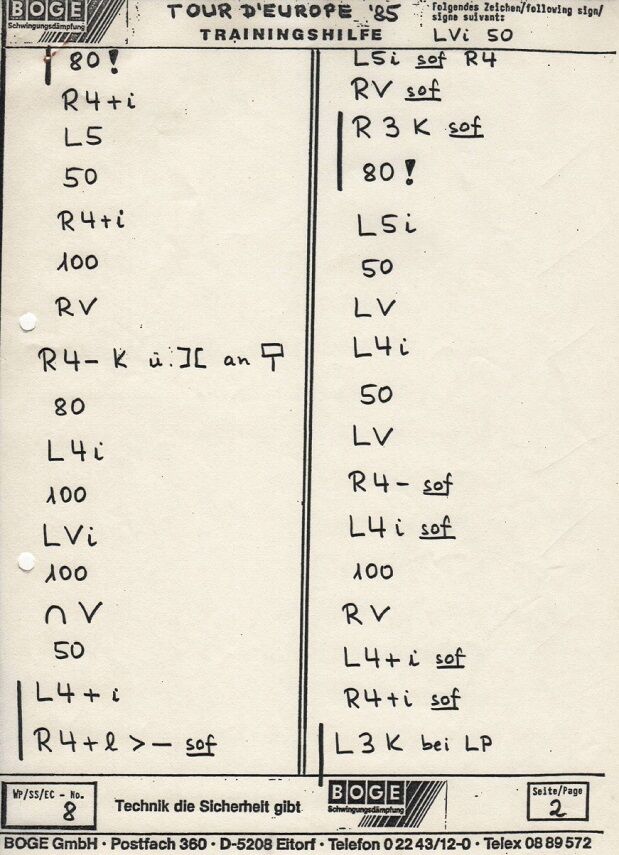 BOGE
Schwingungsdämpfung
TOUR D'EUROPE '85
TRAININGSHILFE
Folgendes Zeichen/following sign/
signe suivant:
LVi 50
80!
R4+i
L5
50
R4+i
100
RV
R4- K ü.][ an
80
L4i
100
LVi
100
∩ V
50
L4+i
R4+l >- sof
L5i sof R4
RV sof
R3K sof
80!
L5i
50
LV
L4i
50
LV
R4- sof
L4i sof
100
RV
L4+i sof
R4+i sof
L3K bei LP
WP/SS/EC - No.
8
Technik die Sicherheit gibt
BOGE
Schwingungsdämpfung
Seite/Page
2
BOGE GmbH · Postfach 360 · D-5208 Eitorf · Telefon 0 22 43/12-0 · Telex 08 89 572